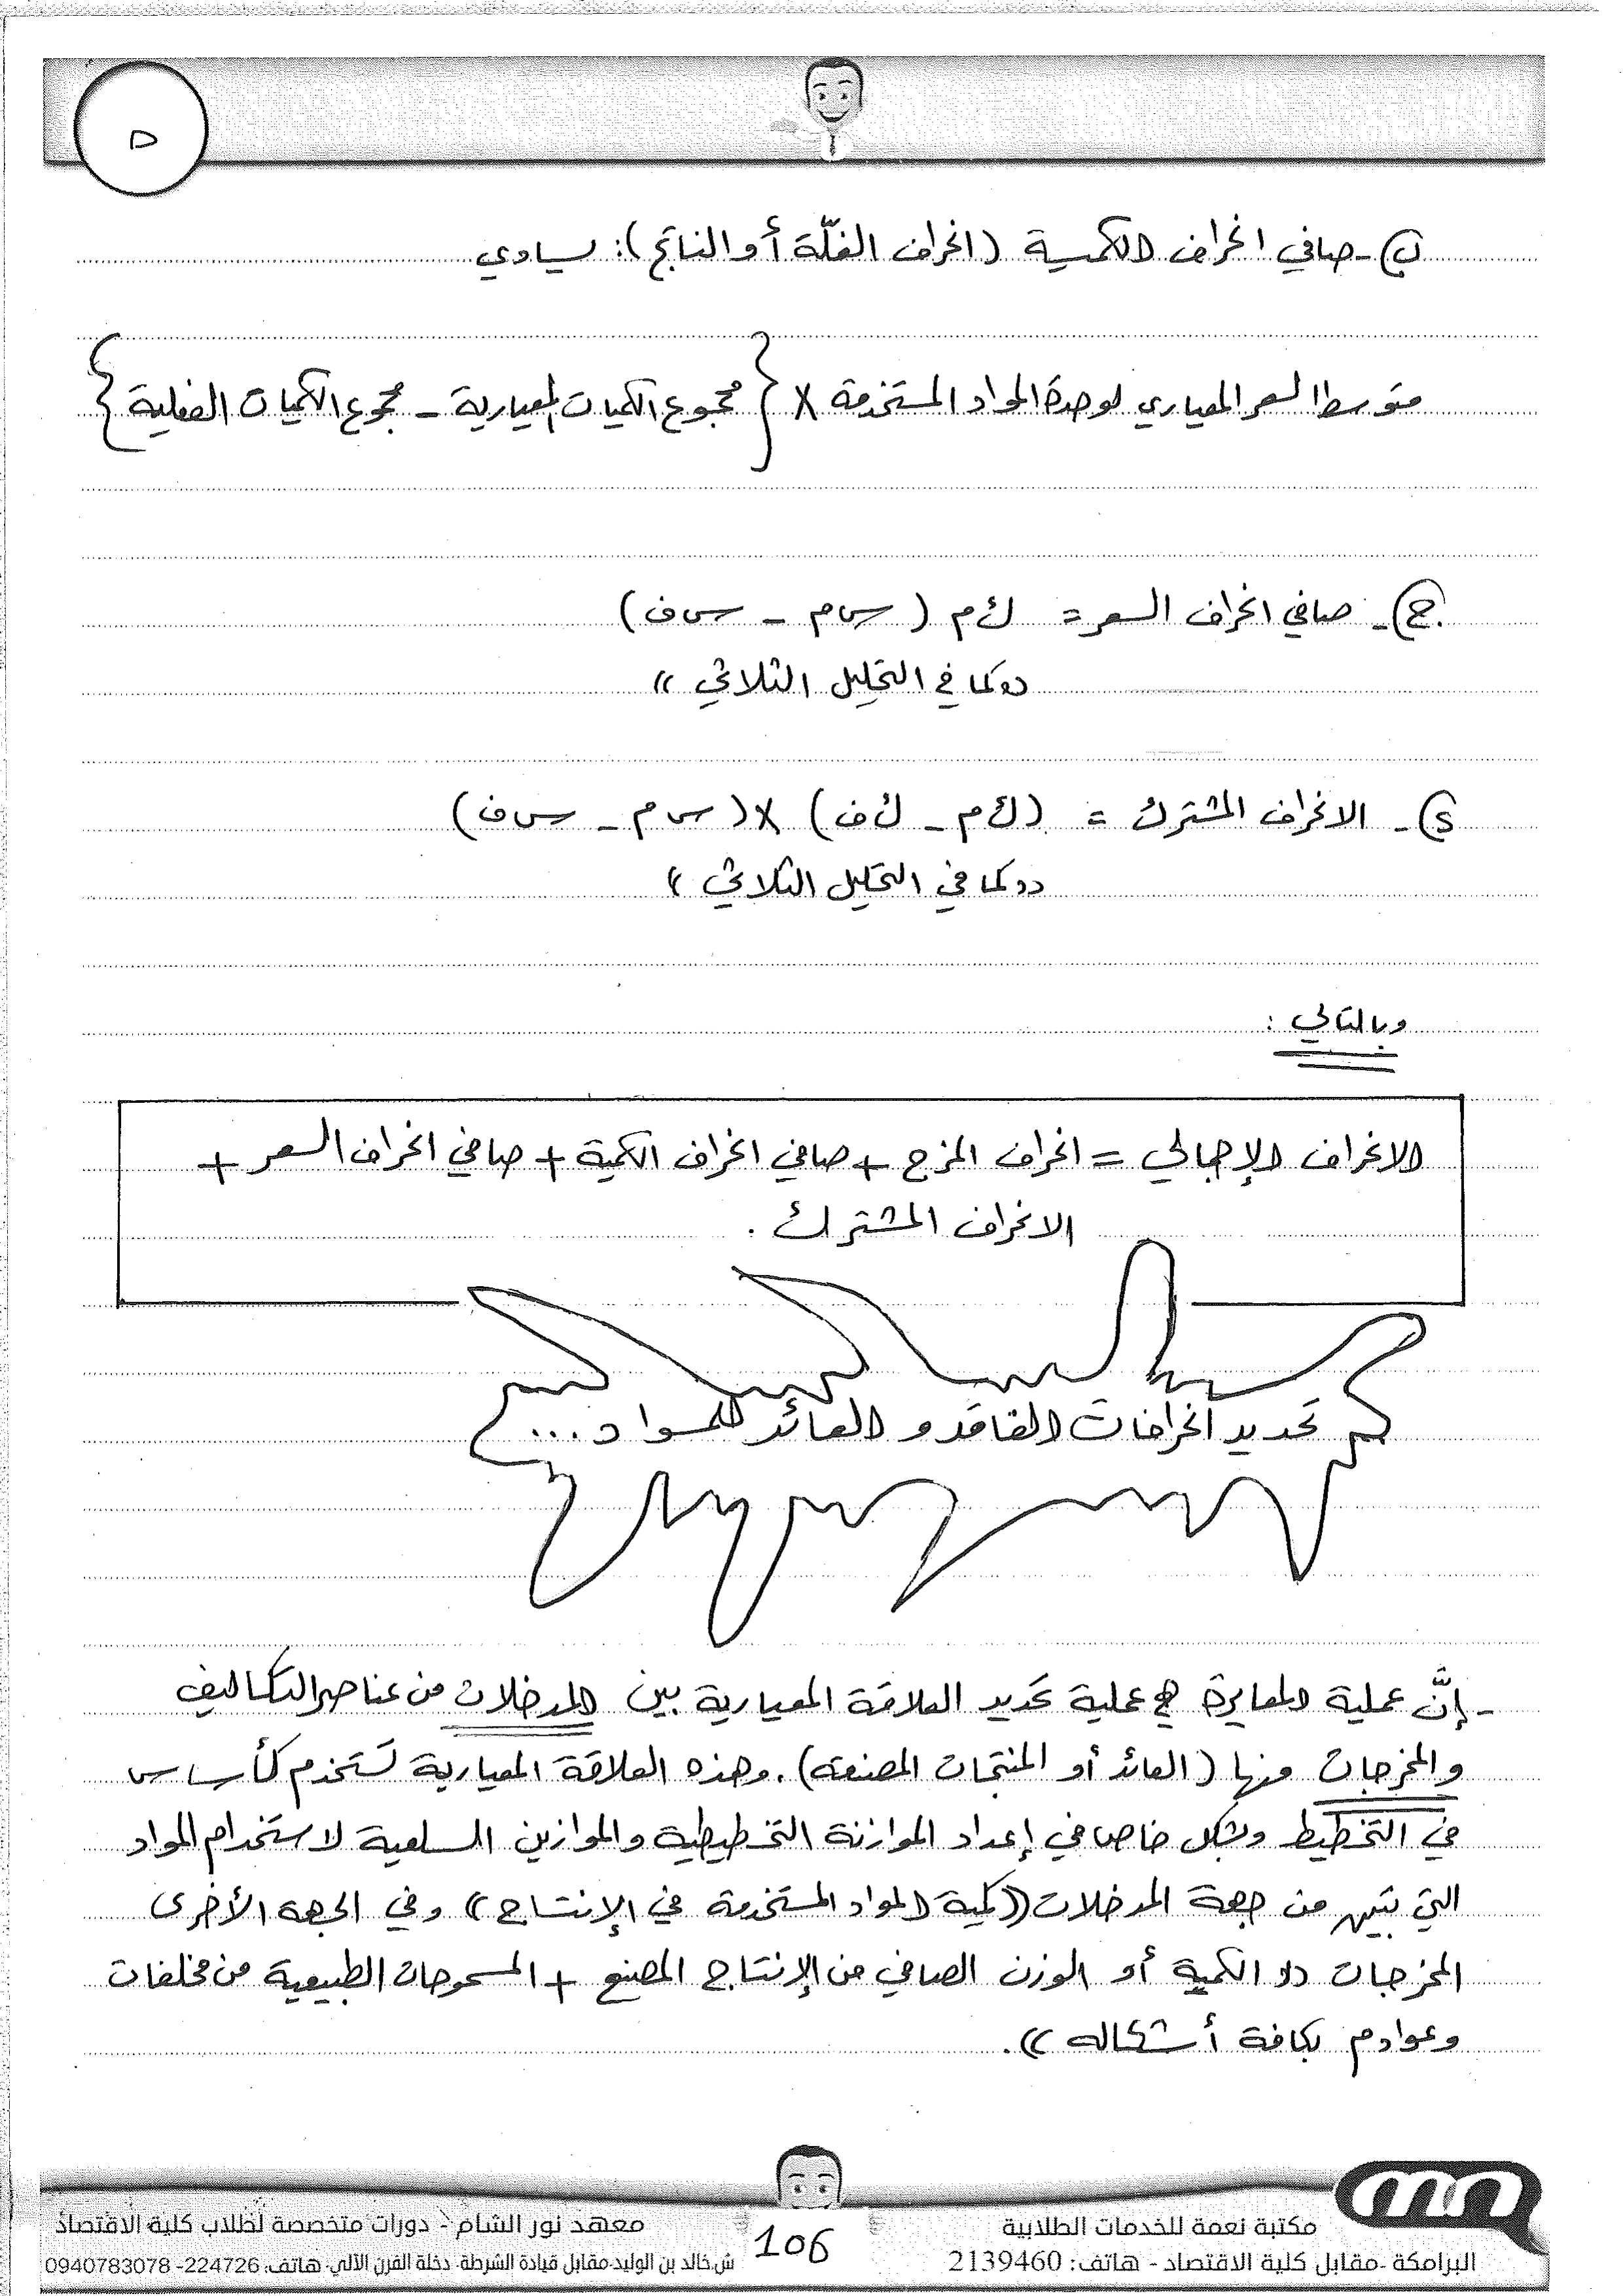 ٥
ب - صافي انحراف الكمية (انحراف الغلّة أو الناتج): يساوي
متوسط السعر المعياري لوحدة المواد المستخدمة × { مجموع الكميات المعيارية - مجموع الكميات الفعلية }
ج - صافي انحراف السعر = ك م ( س م - س ف )
"كما في التحليل الثلاثي"
د - الانحراف المشترك = (ك م - ك ف) × (س م - س ف)
"كما في التحليل الثلاثي"
وبالتالي :
الانحراف الإجمالي = انحراف المزج + صافي انحراف الكمية + صافي انحراف السعر +
الانحراف المشترك .
تحديد انحرافات الفاقد و العائد للمواد ...
- إنَّ عملية المعايرة هي عملية تحديد العلاقة المعيارية بين المدخلات من عناصر التكاليف
والمخرجات منها (العائد أو المنتجات المصنعة) . وهذه العلاقة المعيارية تستخدم كأساس
في التخطيط وبشكل خاص في إعداد الموازنة التخطيطية والموازين السلعية لاستخدام المواد
التي تبين من جهة المدخلات ((كمية المواد المستخدمة في الإنتاج)) وفي الجهة الأخرى
المخرجات "الكمية أو الوزن الصافي من الإنتاج المصنع + المسموحات الطبيعية من مخلفات
وعوادم بكافة أشكاله" .
مكتبة نعمة للخدمات الطلابية
البرامكة - مقابل كلية الاقتصاد - هاتف: 2139460
106
معهد نور الشام - دورات متخصصة لطلاب كلية الاقتصاد
ش.خالد بن الوليد-مقابل قيادة الشرطة- دخلة الفرن الآلي- هاتف: 224726- 0940783078